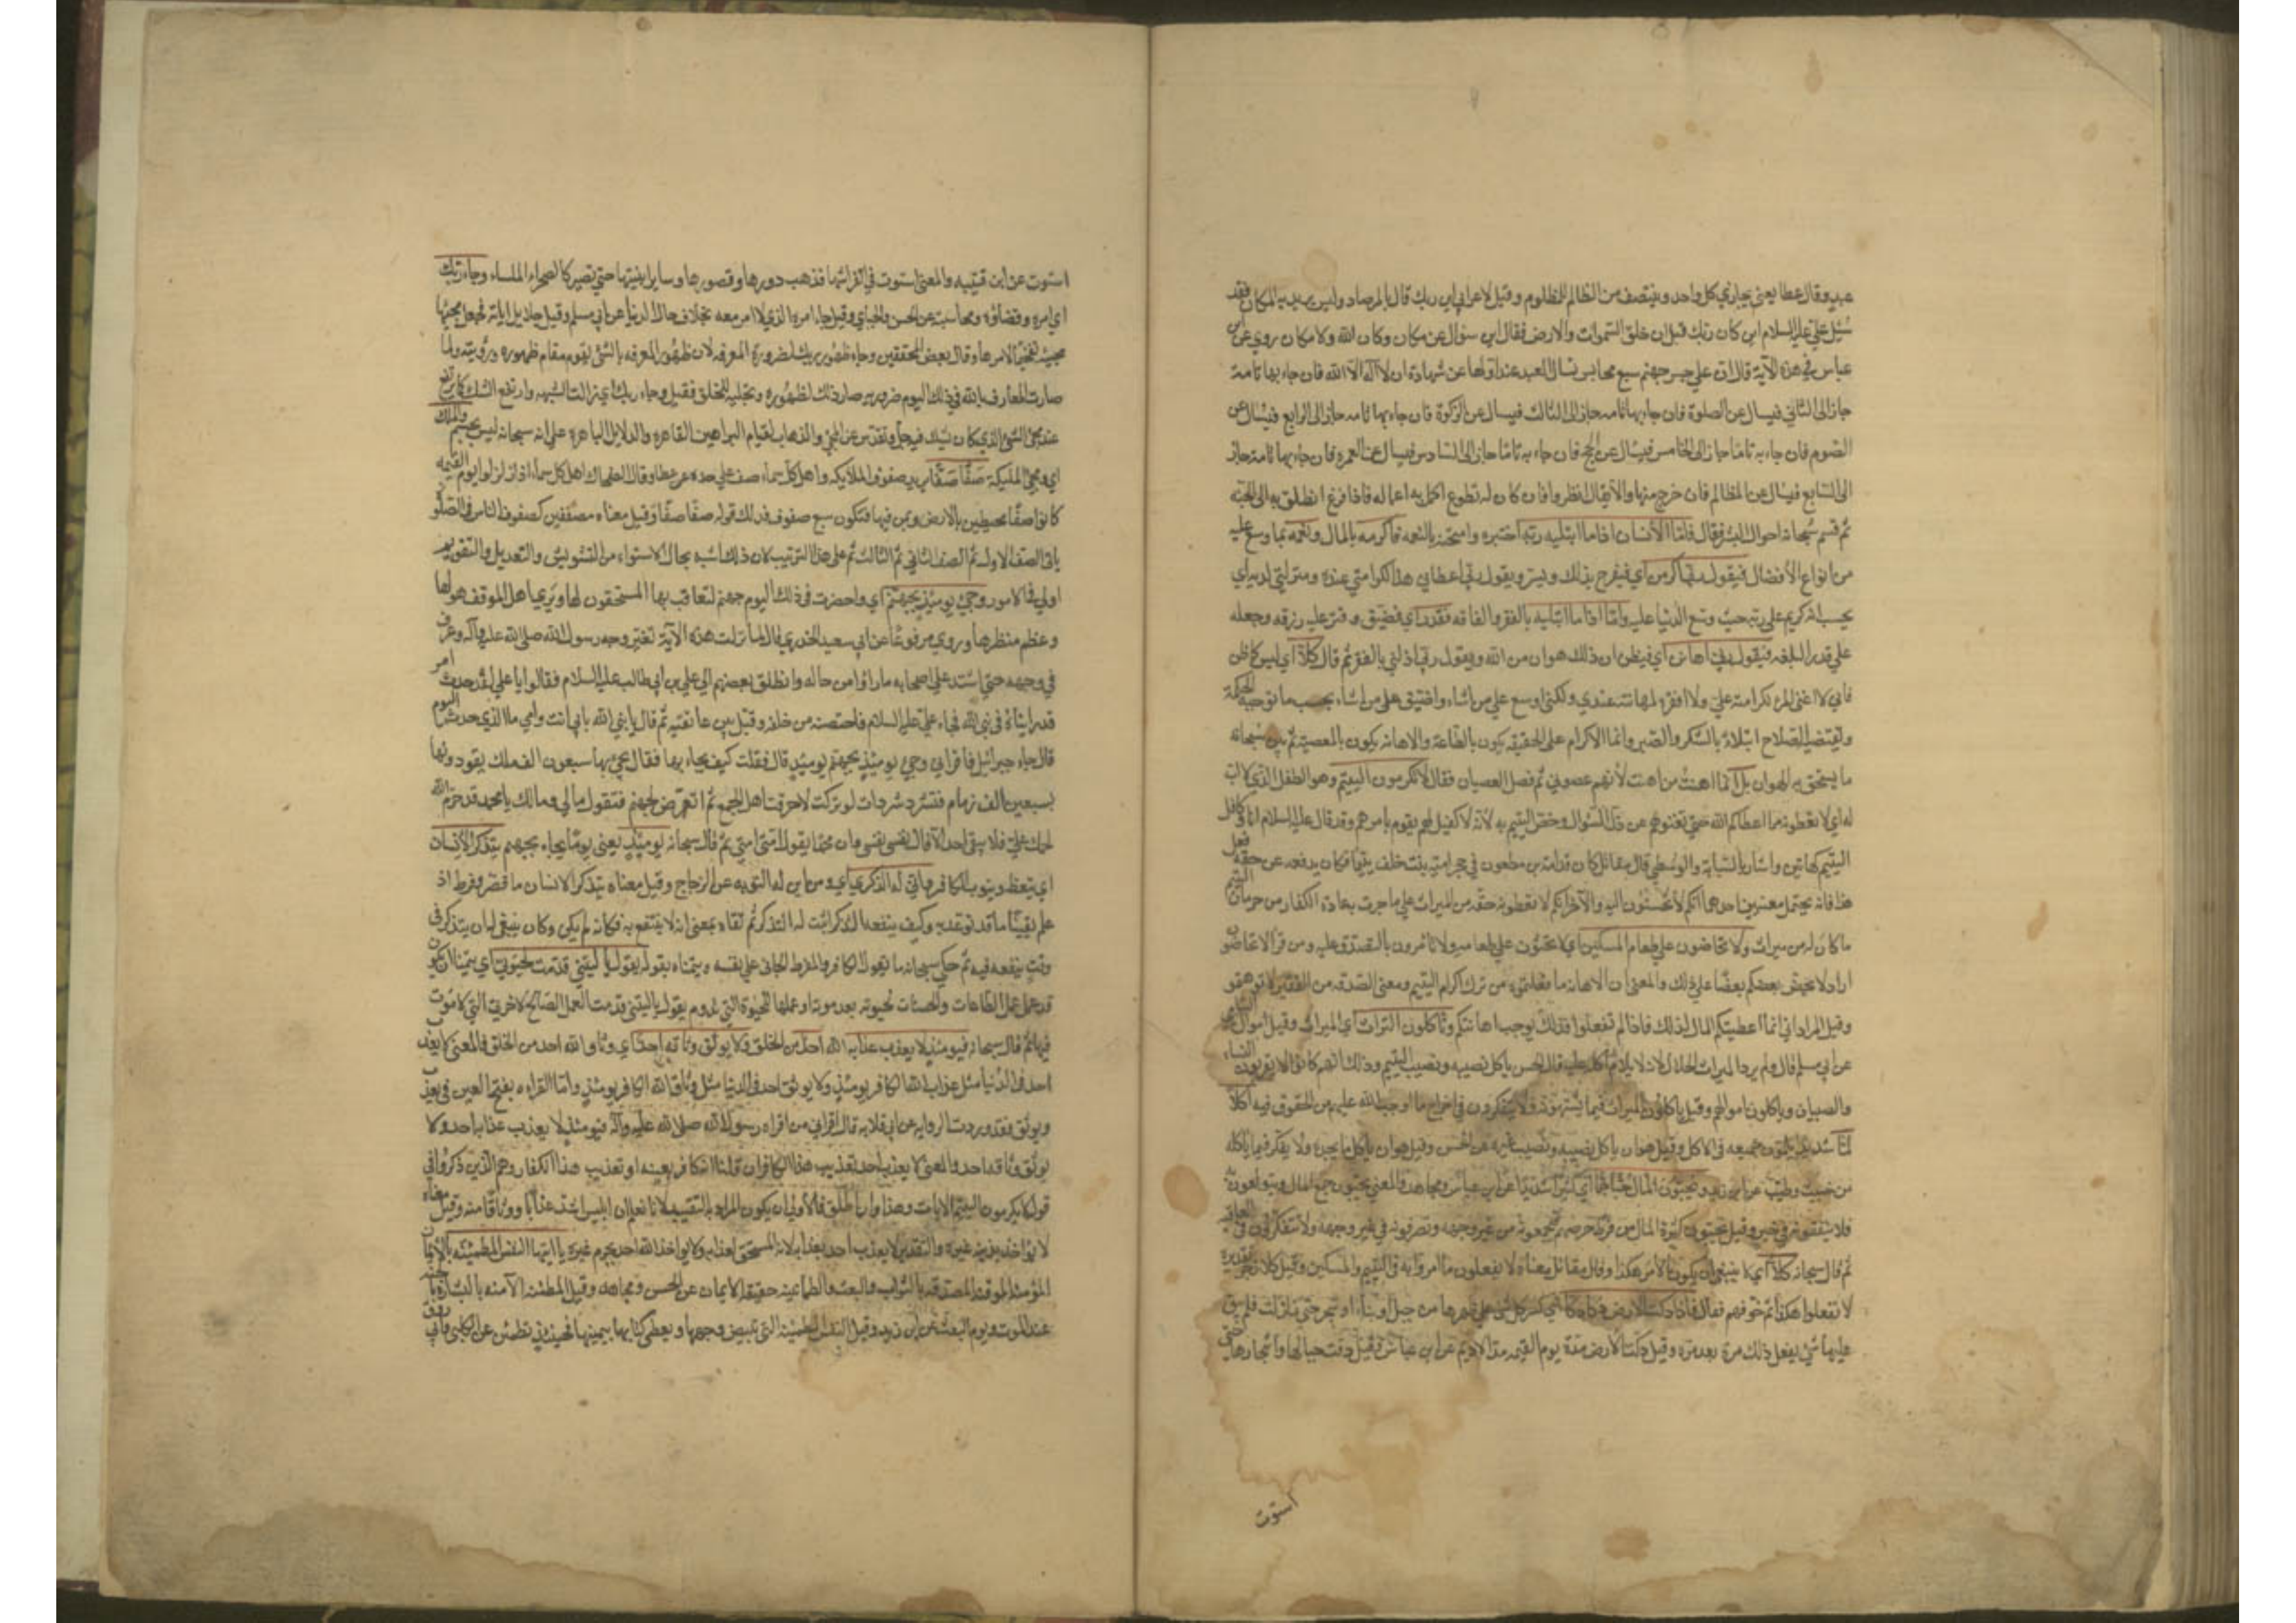 عبيد وقال عطا يعني يجازي كل واحد وينتصف من الظالم للمظلوم وقيل لاعرابي اين ربك قال بالمرصاد وليس يريد به المكان فقد
سُئل علي عليه السلام اين كان ربك قبل ان خلق السموات والارض فقال اين سؤال عن مكان وكان الله ولا مكان روي عن ابن
عباس في هذه الآية قال ان علي جسر جهنم سبع محابس يسال العبد عند اولها عن شهادة ان لا اله الا الله فان جاء بها تامة
جاز الى الثاني فيسال عن الصلوة فان جاء بها تامه جاز الى الثالث فيسال عن الزكوة فان جاء بها تامه جاز الى الرابع فيسال عن
الصوم فان جاء به تامّا جاز الى الخامس فيسال عن الحج فان جاء به تامّا جاز الى السادس فيسال عن العمره فان جاء بها تامة جاز
الى السابع فيسال عن المظالم فان خرج منها والا يقال انظروا فان كان له تطوع اكمل به اعماله فاذا فرغ انطلق به الى الجنة
ثم قسم سبحانه احوال البشر فقال فاما الانسان اذا ما ابتليه ربه اختبره وامتحنه بالنعمة فاكرمه بالمال ونعّمه بما وسع عليه
من انواع الافضال فيقول ربي اكرمن اي فيفرح بذلك ويسر ويقول ربي اعطاني هذا لكرامتي عنده ومنزلتي لديه اي
يحسب انه كريم على ربه حيث وسع الدنيا عليه واما اذا ما ابتليه بالفقر والفاقه فقدر اي فضيق وقتر عليه رزقه وجعله
علي قدر البلغه فيقول ربي اهانن اي فيظن ان ذلك هوان من الله ويقول ربي اذلني بالفقر ثم قال كلا اي ليس كما ظن
فاني لا اغني المرء لكرامته علي ولا افقره لمهانته عندي ولكني اوسع علي من اشاء واضيق على من اشاء بحسب ما توجبه الحكمة
ويقتضيه الصلاح ابتلاء بالشكر والصبر وانما الاكرام على الحقيقه يكون بالطاعة والاهانه يكون بالمعصيه ثم بين سبحانه
ما يستحق به الهوان بل انما اهنت من اهنت لانهم عصوني ثم فصل العصيان فقال لا تكرمون اليتيم وهو الطفل الذي لا اب
له اي لا تعطونه مما اعطاكم الله حتى تغنوهم عن ذل السؤال وخص اليتيم به لانه لا كفيل لهم يقوم بامرهم وقد قال عليه السلام انا وكافل
اليتيم كهاتين واشار بالسبابة والوسطى قال مقاتل كان قدامة بن مظعون في حجر امية بن خلف يتيما فكان يدفعه عن حقه فعلى
هذا فانه يحتمل معنيين احدهما انكم لا تحسنون اليه والآخر انكم لا تعطونه حقه من الميراث علي ما جرت به عادة الكفار من حرمان اليتيم
ما كان له من ميراث ولا تحاضون علي طعام المسكين اي لا تحثون علي طعامه ولا تامرون بالتصدق عليه ومن قرا لا تحاضون
اراد لا يحض بعضكم بعضا علي ذلك والمعني ان الاهانه ما فعلتموه من ترك اكرام اليتيم ومعنى الصدقه من الفقير لا توهمتموه
وقيل المراد اني انما اعطيتكم المال لذلك فاذا لم تفعلوا فذلك يوجب اهانتكم وتاكلون التراث اي الميراث وقيل اموال اليتامى
عن ابي مسلم قال ولم يرد الميراث الحلال لانه لا يلام آكله عليه قال الحسن ياكل نصيبه ونصيب اليتيم وذلك انهم كانوا لا يورثون النساء
والصبيان وياكلون اموالهم وقيل ياكلون الميراث فيما يشتهون ولا يتفكرون في اخراج ما اوجب الله عليهم من الحقوق فيه اكلا
لمّا شديدا تلمون جميعه في الاكل وقيل هو ان ياكل نصيبه ونصيب غيره عن الحسن وقيل هو ان ياكل ما يجده ولا يفكر فيما ياكله
من خبيث وطيب عن ابن زيد وتحبون المال حبا جما اي كثيرا شديدا عن ابن عباس ومجاهد والمعني يحبون جمع المال ويتولعون به
فلا ينفقونه في خير وقيل يحبون كثرة المال من فرط حرصهم فيجمعونه من غير وجهه ويصرفونه في غير وجهه ولا يتفكرون في العاقبه
ثم قال سبحانه كلا اي لا ينبغي ان يكون الامر هكذا وقال مقاتل معناه لا تفعلون ما امروا به في اليتيم والمسكين وقيل كلا زجر تقديره
لا تفعلوا هكذا ثم خوفهم فقال اذا دكت الارض دكا دكا اي كسر كل شيء على ظهرها من جبل او بناء او شجر حتى زلزلت فلم يبق
عليها شيء يفعل ذلك مرة بعد مرة وقيل دكت الارض مدت يوم القيمه مد الاديم عن ابن عباس وقيل دقت جبالها وانشازها حتى
استوت
استوت عن ابن قتيبه والمعنى استوت في انفراشها فذهب دورها وقصورها وساير ابنيتها حتي تصير كالصحراء الملساء وجاء ربك
اي امره وقضاؤه ومحاسبته عن الحسن والجبائي وقيل جاء امره الذي لا امر معه بخلاف حال الدنيا عن ابي مسلم وقيل جلايل اياته فجعل مجيئها
مجيئه تفخيما لامرها وقال بعض المحققين وجاء ظهور ربك لضرورة المعرفه لان ظهور المعرفه بالشيء يقوم مقام ظهوره ورؤيته ولما
صارت المعارف بالله في ذلك اليوم ضروريه صار ذلك لظهوره وتجليه للخلق فقيل وجاء ربك اي زالت الشبهه وارتفع الشك كما يرتفع
عند مجيء الشيء الذي كان يشك فيه جل وتقدس عن المجيء والذهاب لقيام البراهين القاهره والدلايل الباهره على انه سبحانه ليس بجسم والملك
اي وتجيء المليكة صفا صفا يريد صفوف الملايكه واهل كل سماء صف علي حده عن عطا وقال الضحاك اهل كل سماء اذا زلزلوا يوم القيمه
كانوا صفا محيطين بالارض وبمن فيها فتكون سبع صفوف فذلك قوله صفا صفا وقيل معناه مصطفين كصفوف الناس في الصلوه
ياتي الصف الاول ثم الصف الثاني ثم الثالث ثم على هذا الترتيب لان ذلك اشبه بحال الاستواء من التشويش والتعديل والتقويم
اولي في الامور وجيء يومئذ بجهنم اي واحضرت في ذلك اليوم جهنم لتعاقب بها المستحقون لها ويري اهل الموقف هولها
وعظم منظرها وروي مرفوعا عن ابي سعيد الخدري قال لما نزلت هذه الآية تغير وجه رسول الله صلى الله عليه وآله وعرف
في وجهه حتي اشتد علي اصحابه ما راوا من حاله وانطلق بعضهم الي علي بن ابي طالب عليه السلام فقالوا يا علي لقد حدث امر
قد رايناه في نبي الله فجاء علي عليه السلام فاحتضنه من خلفه وقبل بين عاتقيه ثم قال يا نبي الله بابي انت وامي ما الذي حدث اليوم
قال جاء جبرائيل فاقراني وجيء يومئذ بجهنم يومئذ قال فقلت كيف يجاء بها فقال يجيء بها سبعون الف ملك يقودونها
بسبعين الف زمام فتشرد شردات لو تركت لاحرقت اهل الجمع ثم اتعرض لجهنم فتقول مالي ومالك يا محمد قد حرم الله
لحمك علي فلا يبقى احد الا قال نفسي نفسي وان محمدا يقول امتي امتي ثم قال سبحانه يومئذ يعني يوما يجاء بجهنم يتذكر الانسان
اي يتعظ ويتوب الكافر وانى له الذكرى اي ومن اين له التوبه عن الزجاج وقيل معناه يتذكر الانسان ما قصر وفرط اذ
علم يقينا ما قد توعد به وكيف ينفعه التذكر اثبت له التذكر ثم نفاه بمعنى انه لا ينتفع به فكانه لم يكن وكان ينبغي له ان يتذكر في
وقت ينفعه فيه ثم حكى سبحانه ما يقول الكافر والمفرط الجاني علي نفسه ويتمناه بقوله يقول يا ليتني قدمت لحيوتي اي يتمنا ان يكون
قد عمل عمل الطاعات والحسنات لحيوته بعد موته او عملها للحيوة التي تدوم يقول يا ليتني قدمت العمل الصالح لآخرتي التي لا موت
فيها ثم قال سبحانه فيومئذ لا يعذب عذابه الله احد من الخلق ولا يوثق وثاقه احد اي وثاق الله احد من الخلق فالمعنى لا يعذب
احد في الدنيا مثل عذاب الله الكافر يومئذ ولا يوثق احد في الدنيا مثل وثاق الله الكافر يومئذ واما القراءه بفتح العين في يعذب
ويوثق فقد وردت الروايه عن ابي قلابه قال اقراني من اقراه رسول الله صلى الله عليه وآله فيومئذ لا يعذب عذابه احد ولا
يوثق وثاقه احد والمعنى لا يعذب احد تعذيب هذا الكافر ان قلنا انه كافر بعينه او تعذيب هذا الكفار وهم الذين ذكروا في
قوله لا يكرمون اليتيم الايات وهذا وان اطلق فالاولي ان يكون المراد به التقييد لانا نعلم ان ابليس اشد عذابا ووثاقا منه وقيل معناه
لا يؤاخذ بذنبه غيره والتقدير لا يعذب احد بعذابه لانه المستحق لعذابه ولا يواخذ الله احد بجرم غيره يا ايتها النفس المطمئنه بالايمان
المؤمنه الموقنه المصدقه بالثواب والبعث والطمانينه حقيقه الايمان عن الحسن ومجاهد وقيل المطمئنه الآمنه بالبشاره بالجنه
عند الموت ويوم البعث عن ابن زيد وقيل النفس المطمئنه التي تبيض وجهها ويعطى كتابها بيمينها فحينئذ تطمئن عن الكلبي وابي روق